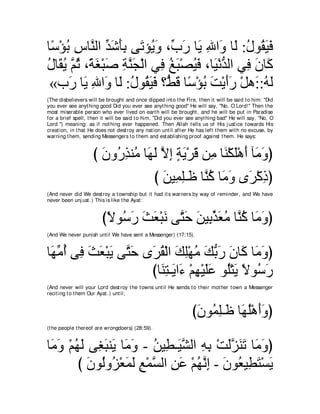 فَيَقُولُ: لَا وَاللهِ يَا رَبِّ، وَيُؤْتَى بِأَشَدِّ النَّاسِ بُؤْسًا
كَانَ فِي الدُّنْيَا، فَيُصْبَغُ فِي الْجَنَّةِ صَبْغَةً، ثُمَّ يُقَالُ
لَهُ::هَلْ رَأَيْتَ بُؤْسًا قَطُّ؟ فَيَقُولُ: لَا وَاللهِ يَا رَبِّ»
(The disbelievers will be brought and once dipped into the Fire, then it will be said to him: "Did
you ever see anything good Did you ever see anything good" He will say, "No, O Lord!'' Then the
most miserable person who ever lived on earth will be brought, and he will be put in Paradise
for a brief spell, then it will be said to him, "Did you ever see anything bad'' He will say, "No, O
Lord.'') meaning: as if nothing ever happened. Then Allah tells us of His justice towards His
creation, in that He does not destroy any nation until after He has left them with no excuse, by
warning them, sending Messengers to them and establishing proof against them. He says:
(وَمَآ أَهْلَكْنَا مِن قَرْيَةٍ إِلاَّ لَهَا مُنذِرُونَ )
(ذِكْرَى وَمَا كُنَّا ظَـلِمِينَ )
(And never did We destroy a township but it had its warners by way of reminder, and We have
never been unjust.) This is like the Ayat:
(وَمَا كُنَّا مُعَذِّبِينَ حَتَّى نَبْعَثَ رَسُولاً)
(And We never punish until We have sent a Messenger) (17:15).
(وَمَا كَانَ رَبُّكَ مُهْلِكَ الْقُرَى حَتَّى يَبْعَثَ فِى أُمِّهَا
رَسُولاً يَتْلُو عَلَيْهِمْ ءَايَـتِنَا)
(And never will your Lord destroy the towns until He sends to their mother town a Messenger
reciting to them Our Ayat.) until;
(وَأَهْلُهَا ظَـلِمُونَ)
(the people thereof are wrongdoers) (28:59).
(وَمَا تَنَزَّلَتْ بِهِ الشَّيَـطِينُ - وَمَا يَنبَغِى لَهُمْ وَمَا
يَسْتَطِيعُونَ - إِنَّهُمْ عَنِ السَّمْعِ لَمَعْزُولُونَ )